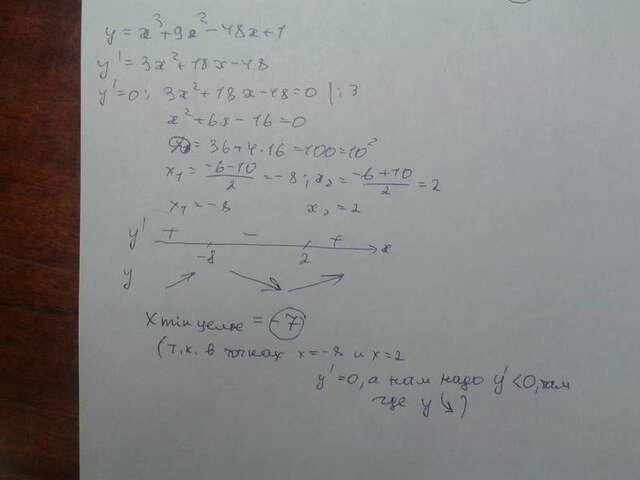 y = x³+9x²-48x+1
y' = 3x²+18x-48
y'=0; 3x²+18x-48=0 |:3
x²+6x-16=0
D= 36+4·16=100=10²
x₁ = (-6-10)/2 = -8; x₂ = (-6+10)/2 = 2
x₁ = -8 x₂ = 2
y' + - + x
-8 2
y ↗ ↘ ↗
X min целое = -7
(т.к. в точках x=-8 и x=2
y'=0, а нам надо y'<0, там
где y ↘)